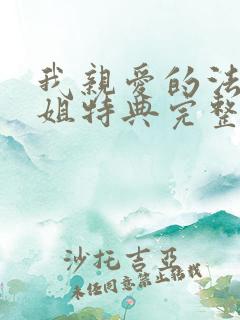 我親愛的法
姐特典完整
沙托吉亞
未经同意禁止转载